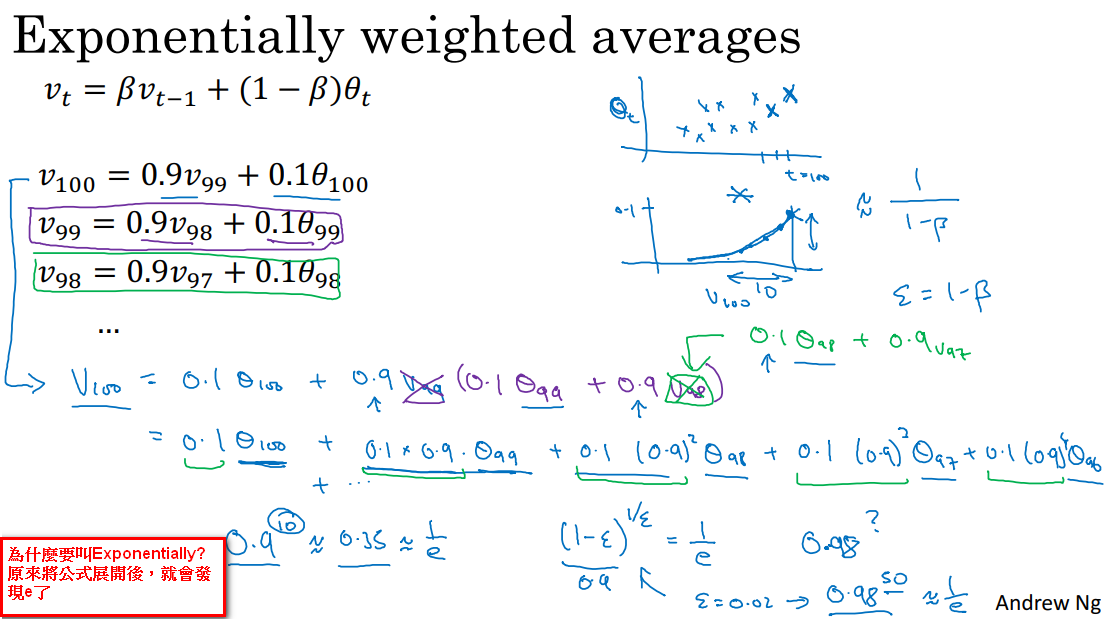 Exponentially weighted averages
vₜ = βvₜ₋₁ + (1 − β)θₜ
θₜ
t=100
v₁₀₀ = 0.9v₉₉ + 0.1θ₁₀₀
v₉₉ = 0.9v₉₈ + 0.1θ₉₉
v₉₈ = 0.9v₉₇ + 0.1θ₉₈
...
0.1
V₁₀₀
10
≈ 1/(1-β)
ε = 1-β
0.1 θ₉₈ + 0.9 v₉₇
V₁₀₀ = 0.1 θ₁₀₀ + 0.9 V₉₉ (0.1 θ₉₉ + 0.9 V₉₈)
= 0.1 θ₁₀₀ + 0.1 × 0.9 · θ₉₉ + 0.1 (0.9)² θ₉₈ + 0.1 (0.9)³ θ₉₇ + 0.1 (0.9)⁴ θ₉₆
+ ...
0.9¹⁰ ≈ 0.35 ≈ 1/e
(1-ε)^(1/ε) = 1/e
0.9
0.98^?
ε = 0.02 → 0.98⁵⁰ ≈ 1/e
為什麼要叫Exponentially?
原來將公式展開後，就會發
現e了
Andrew Ng